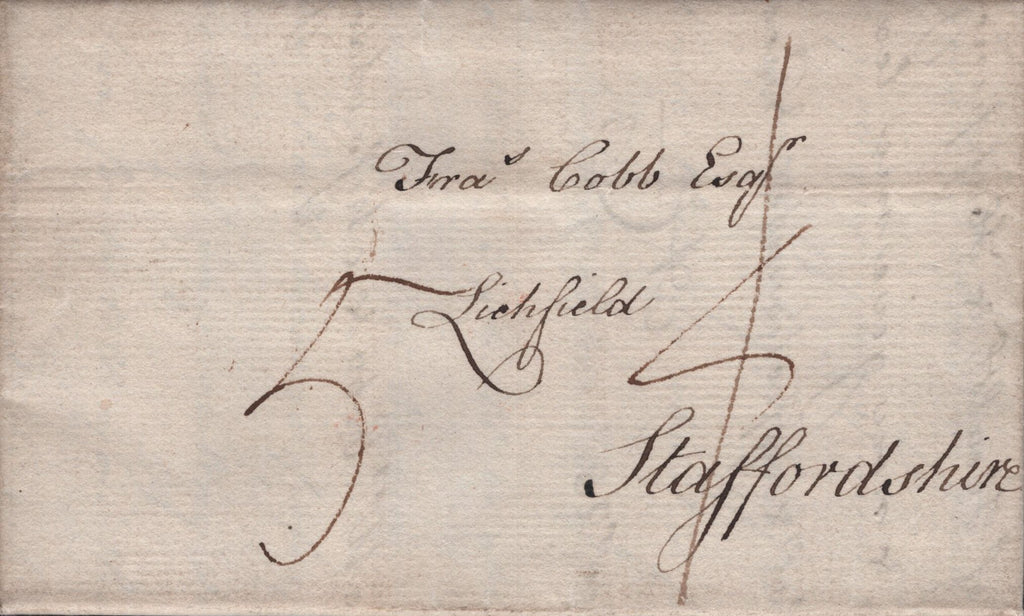 Fra^s Cobb Esq^r
Lichfield
5
4
Staffordshire